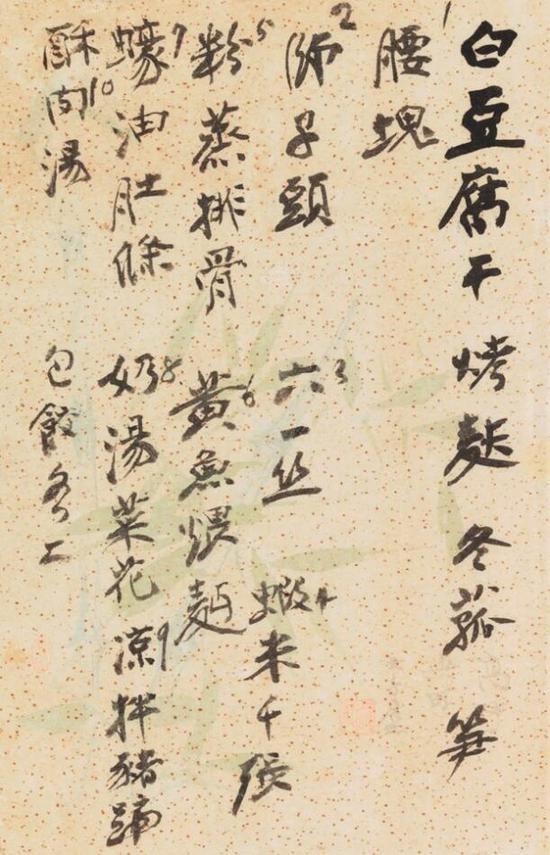 白豆腐干 烤麩 冬菰 笋
腰塊 1
師子頭 2 六一丝 3 蝦米千張 4
粉蒸排骨 5 黃魚煨麵 6
蠔油肚條 7 奶湯菜花 8 涼拌豬蹄 9
酥肉湯 10 包餃